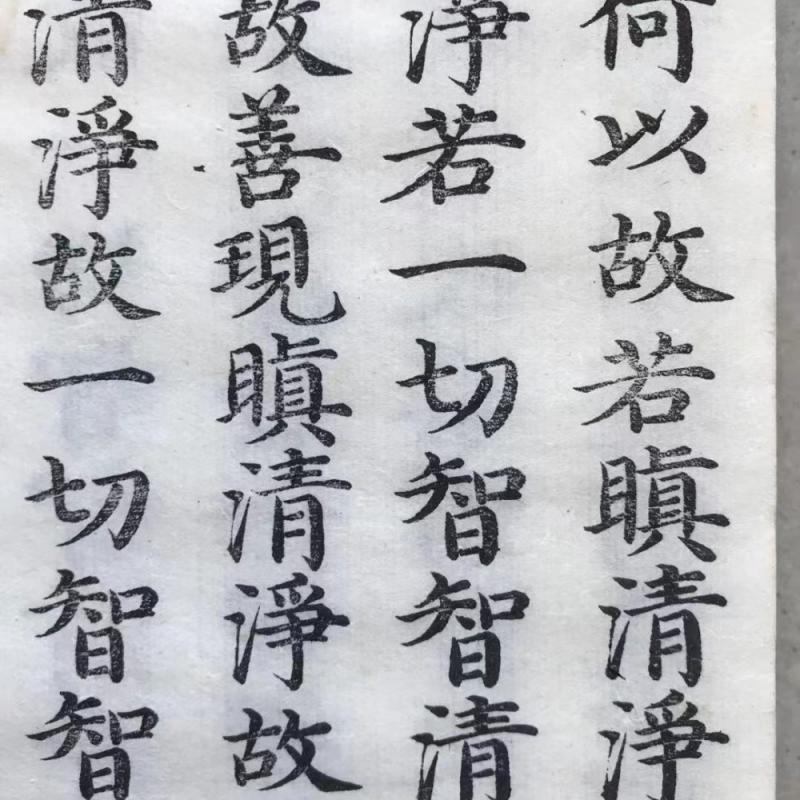 何以故若瞋清淨
淨若一切智智清
故善現瞋清淨故
清淨故一切智智